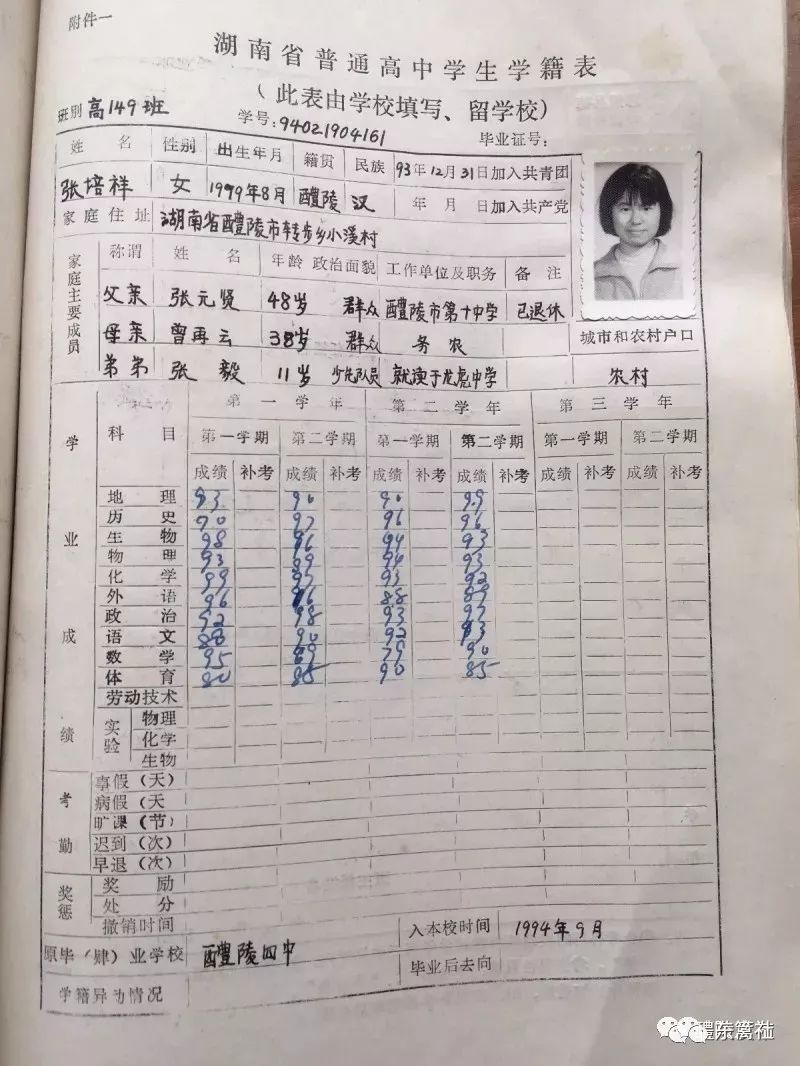 附件一
湖南省普通高中学生学籍表
（此表由学校填写、留学校）
班别高149班 学号:94021904161 毕业证号:
姓名 性别 出生年月 籍贯 民族 93年12月31日加入共青团
张培祥 女 1979年8月 醴陵 汉 年 月 日加入共产党
家庭住址 湖南省醴陵市转步乡小溪村
家庭主要成员 称谓 姓名 年龄 政治面貌 工作单位及职务 备注
父亲 张元贤 48岁 群众 醴陵市第十中学 已退休
母亲 曾再云 38岁 群众 务农
城市和农村户口
弟弟 张毅 11岁 少先队员 就读于龙虎中学
农村
学业成绩 科目 第一学年 第二学年 第三学年
第一学期 第二学期 第一学期 第二学期 第一学期 第二学期
成绩 补考 成绩 补考 成绩 补考 成绩 补考 成绩 补考 成绩 补考
地理 93 90 90 99
历史 90 97 96 96
生物 98 94 93
物理 93 89 94 93
化学 89 97 93 92
外语 96 88 89
政治 92 98 93 97
语文 88 90 92
数学 95 89 79 90
体育 80 85 90 85
劳动技术
实验 物理
化学
生物
考勤 事假（天）
病假（天
旷课（节）
迟到（次）
早退（次）
奖惩 奖励
处分
撤销时间
入本校时间 1994年9月
原毕（肄）业学校 醴陵四中
毕业后去向
学籍异动情况
醴陵篱社